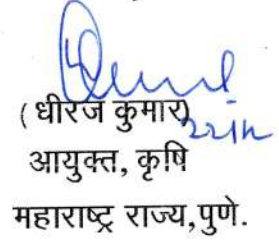 ( धीरज कुमार)
आयुक्त, कृषि
महाराष्ट्र राज्य,पुणे.